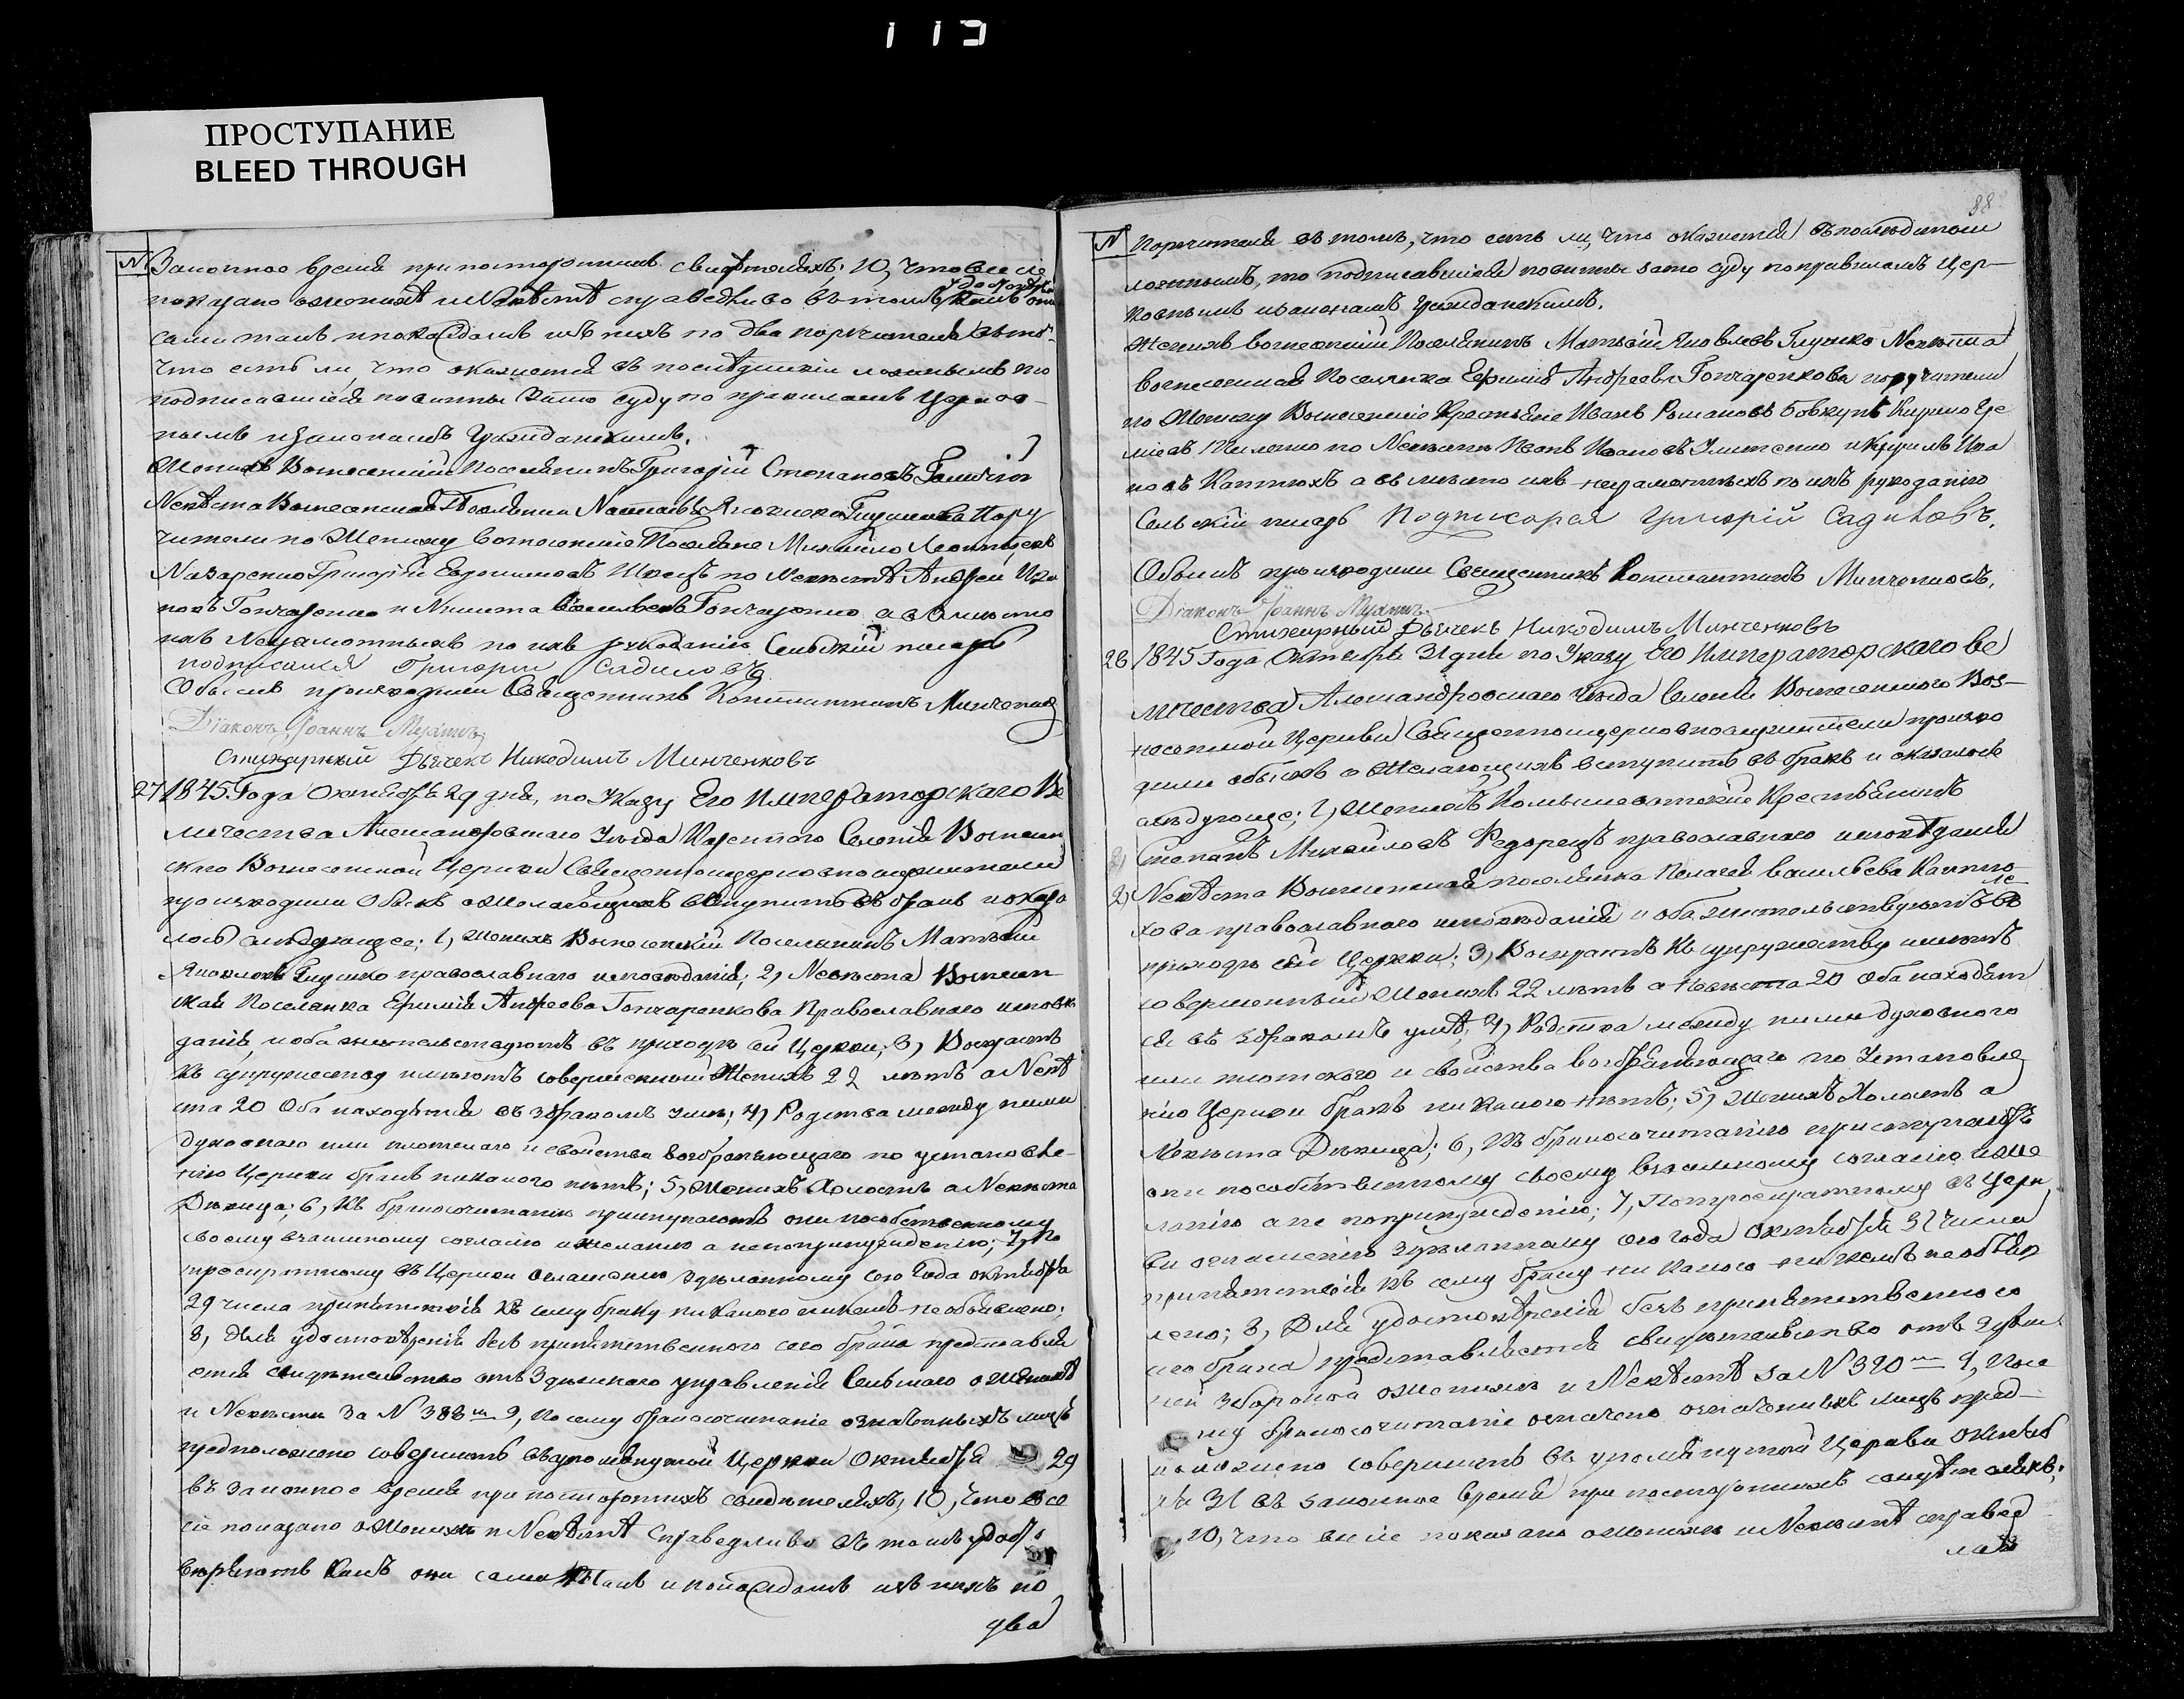 113
ПРОСТУПАНИЕ
BLEED THROUGH
N
Законное время при постороннихъ свидѣтеляхъ; 10, что все сіе
показано о женихѣ и Невѣстѣ справедливо въ томъ удостовѣ какъ они
сами такъ и по каждомъ изъ нихъ по два поручителя въ то
что есть ли, что окажется въ послѣдствіи ложнымъ то
подписавшіеся повинны зато суду по правиламъ Церков-
нымъ и законамъ Гражданскимъ.
Женихъ Вознесенскій Поселянинъ Григорій Степановъ
Невѣста Вознесенская Поселянка Яковлева Глушкова Пору
чители по Жениху Вознесенскіе Поселяне Михайло
Назаренко Григорій Евдокимовъ Швецъ по Невѣстѣ Андрей Ива
новъ Гончаренко и Никита Васильевъ Гончаренко а вмѣсто
ихъ Неграмотныхъ по ихъ рукоданію Сельскій писарь
подписался Григорій Садиловъ
Обыскъ производили Священникъ Константинъ Минченков
Діаконъ Іоаннъ
Стихарный Дьячекъ Никодимъ Минченковъ
27 1845 Года Октября 29 дня, по Указу Его Императорскаго Ве
личества Александровскаго Уѣзда Казеннаго Селенія Вознесен
скаго Вознесенской Церкви Священноцерковнослужители
производили Обыскъ о желающихъ вступить въ бракъ и оказа
лось слѣдующее; 1, Женихъ Вознесенскій Поселянинъ Матвѣй
Яковлевъ Глушко православнаго исповѣданія; 2, Невѣста Вознесен
ская Поселянка Ефимія Андреева Гончаренкова Православнаго исповѣ
данія, и оба жительствуютъ въ приходѣ сей Церкви; 3, Возрастъ
къ супружеству имѣютъ совершенный Женихъ 22 лѣтъ а Невѣ
ста 20 Оба находятся въ здравомъ умѣ; 4, Родства между ними
духовнаго или плотскаго и свойства возбраняющаго по установле-
нію Церкви бракъ никакого нѣтъ; 5, Женихъ Холостъ а Невѣста
Дѣвица; 6, Къ бракосочетанію приступаютъ они по собственному
своему взаимному согласію и желанію а не по принужденію; 7, По
троекратному въ Церкви оглашенію здѣланному сего Года октября
29 числа препятствія къ сему браку никакого никемъ не объявлено;
8, Для удостовѣренія безъ препятственнаго сего брака представля
ется свидѣтельство отъ Здѣшняго управленія Сельскаго о Женихѣ
и Невѣсти За N 388 м 9, По сему бракосочитаніе означенныхъ лицъ
предположено совершить въ упомянутой Церкви Октября 29
въ законное время при постороннихъ свидѣтеляхъ; 10, что все
сіе показано о Женихѣ и Невѣстѣ Справедливо въ томъ удосто
вѣряютъ Какъ они сами Такъ и по каждомъ изъ нихъ по
два
88
N
Поручителя въ томъ, что есть ли, что окажется въ послѣдствіи
ложнымъ, то подписавшіеся повинны зато суду по правиламъ Цер-
ковнымъ и законамъ Гражданскимъ.
Женихъ вознесенскій Поселянинъ Матвѣй Яковлевъ Глушко Невѣста
вознесенская Поселянка Ефимія Андреева Гончаренкова поручители
по Жениху Вознесенскіе Крестьяне Иванъ Романовъ Бовкунъ Кирило
по Невѣсти Иванъ Ивановъ и Кирилъ Ива
новъ Каптюхъ а вмѣсто ихъ неграмотныхъ по ихъ рукоданію
Сельскій писарь Подписался Григорій Садиловъ.
Обыскъ производили Священникъ Константинъ Минченковъ,
Діаконъ Іоаннъ
Стихарный Дьячекъ Никодимъ Минченковъ
28 1845 Года Октября 31 дня по Указу Его Императорскаго ве
личества Александровскаго Уѣзда Селенія Вознесенскаго Воз-
несенской Церкви Священноцерковнослужители произво
дили обыскъ о желающихъ вступить въ бракъ и оказалось
слѣдующее; 1, Женихъ Крестьянинъ
Стефанъ Михайловъ Федорецъ православнаго исповѣданія
2, Невѣста Вознесенская поселянка Пелагея Васильева Каптю
хова православнаго исповѣданія и оба жительствуютъ въ
приходѣ сей Церкви; 3, Возрастъ къ супружеству имѣютъ
совершенный Женихъ 22 лѣтъ а Невѣста 20 Оба находят
ся въ здравомъ умѣ; 4, Родства между ними духовнаго
или плотскаго и свойства возбраняющаго по Установле
нію Церкви бракъ никакого нѣтъ; 5, Женихъ Холостъ а
Невѣста Дѣвица; 6, Къ бракосочитанію приступаютъ
они по собственному своему взаимному согласію и же
ланію а не по принужденію; 7, По троекратному въ Церк
ви оглашенію здѣланному сего года Октября 31 числа
препятствія къ сему браку никакого никемъ не объяв
лено; 8, Для удостовѣренія безъ препятственнаго
сего брака представляется свидѣтельство отъ
о Женихѣ и Невѣстѣ за N 390 м 9, По се
му бракосочитаніе означено означенныхъ лицъ пред-
положено совершить въ упомянутой Церкви Октяб
ря 31 въ законное время при постороннихъ свидѣтеляхъ;
10, что все сіе показано о Женихѣ и Невѣстѣ справед